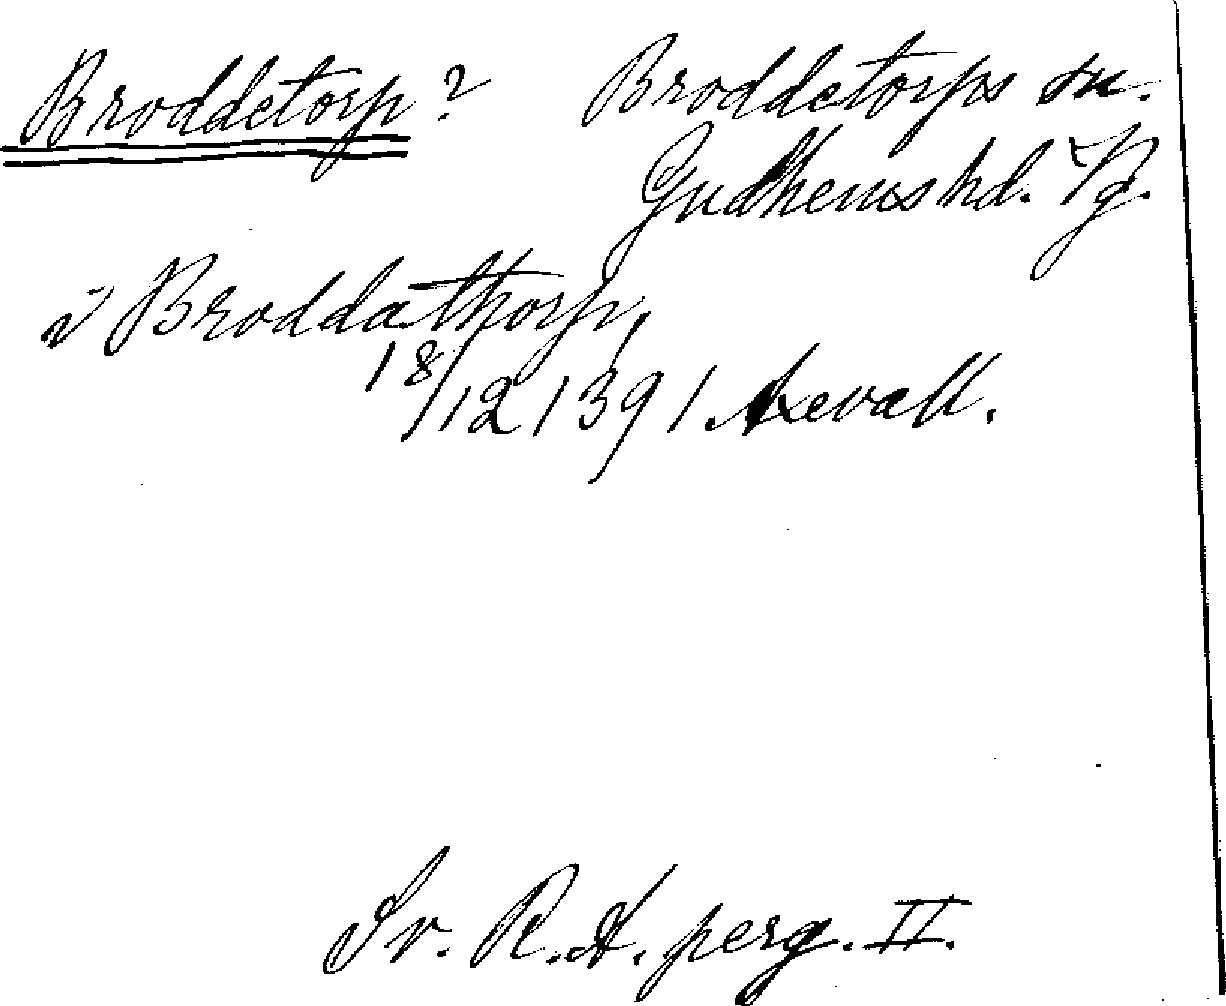 Broddetorp? Broddetorps sn.
Gudhems hd. Vg.
i Broddathorp,
18/12 1391. Axevall.
Sv. R. A. perg. II.